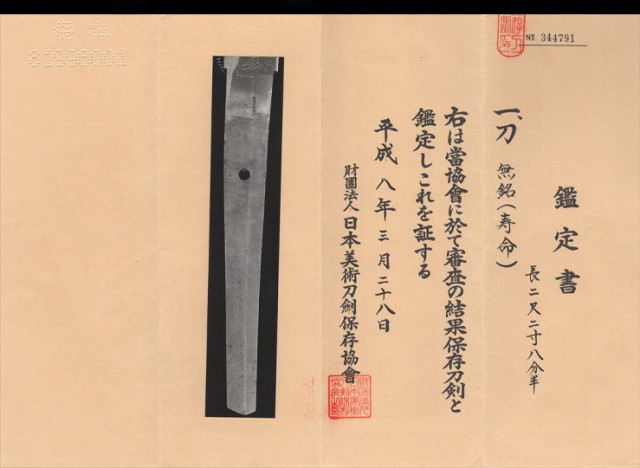 № 344791
鑑定書
一、刀 無銘(寿命)
長二尺二寸八分半
右は當協會に於て審査の結果保存刀剣と
鑑定しこれを証する
平成八年三月二十八日
財團法人 日本美術刀劍保存協會